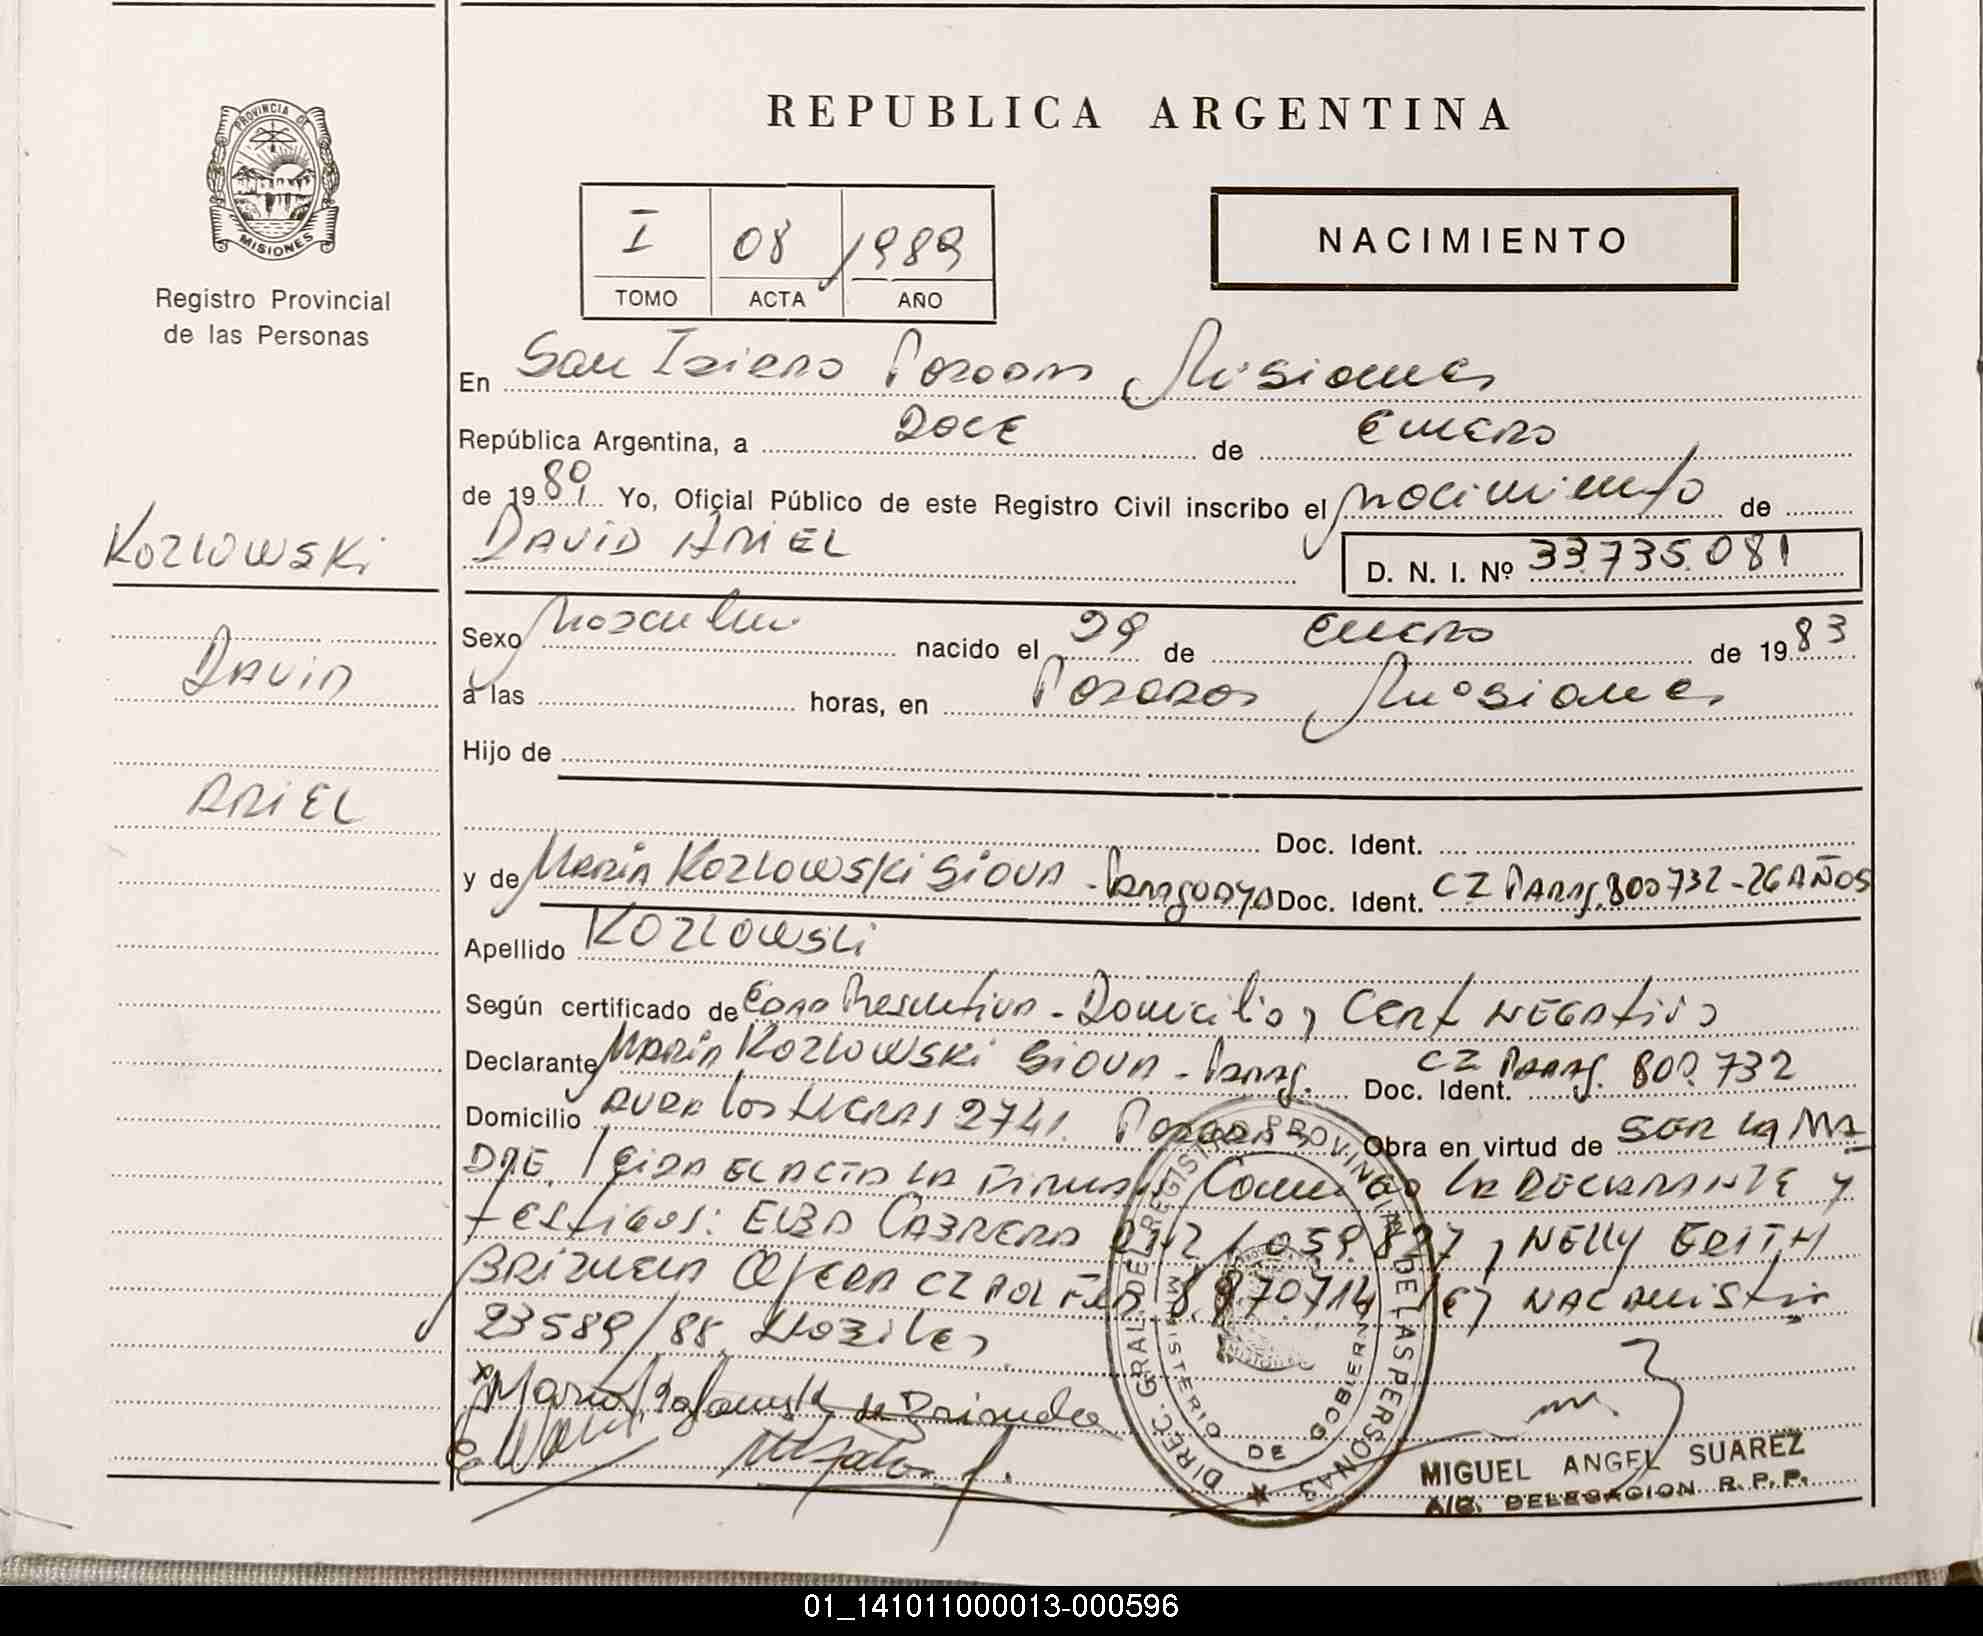 PROVINCIA DE
MISIONES
Registro Provincial
de las Personas
KOZLOWSKI
DAVID
ARIEL
REPUBLICA ARGENTINA
I 08 /1989
TOMO ACTA AÑO
NACIMIENTO
En San Isidro Posadas Misiones
República Argentina, a DOCE de Enero
de 1989 Yo, Oficial Público de este Registro Civil inscribo el nacimiento de
DAVID ARIEL
D. N. I. Nº 33.735.081
Sexo Masculino nacido el 29 de Enero de 1983
a las horas, en Posadas Misiones
Hijo de
Doc. Ident.
y de MARIA KOZLOWSKI Paraguaya Doc. Ident. CZ PARAG. 800732-26 AÑOS
Apellido KOZLOWSKI
Según certificado de Domicilio y Cert NEGATIVO
Declarante MARIA KOZLOWSKI Parag. Doc. Ident. CZ PARAG. 800.732
Domicilio 2741. Posadas Obra en virtud de SER LA MA
DRE. LEIDA EL ACTA LA FIRMAN Conmigo LA DECLARANTE y
testigos: ELBA CABRERA y NELLY EDITH
BRIZUELA OJEDA CZ POL
23589/88
DIREC. GRAL. DEL REGISTRO PROVINCIAL DE LAS PERSONAS
MINISTERIO DE GOBIERNO
MIGUEL ANGEL SUAREZ
A/C. DELEGACION R. P. P.
01_141011000013-000596